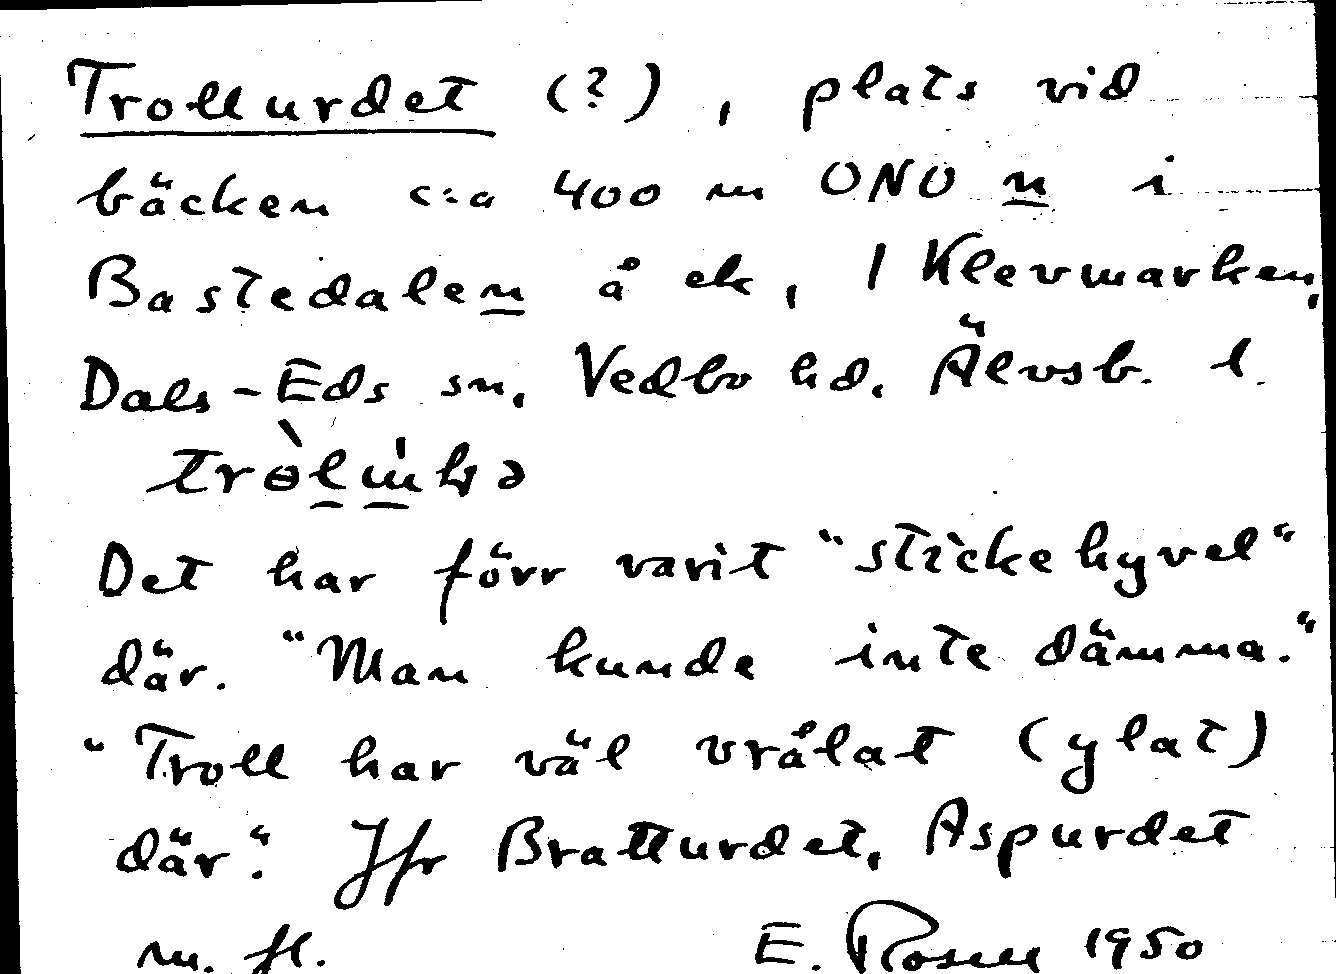 Trollurdet (?), plats vid
bäcken c:a 400 m ONO n i
Bastedalen å ek, 1 Klevmarken,
Dals-Eds sn, Vedbo hd. Älvsb. l.
Det har förr varit "stickehyvel"
där. "Man kunde inte dämma."
"Troll har väl vrålat (ylat)
där". Jfr Bratturdet, Aspurdet
m. fl. E. Rosell 1950